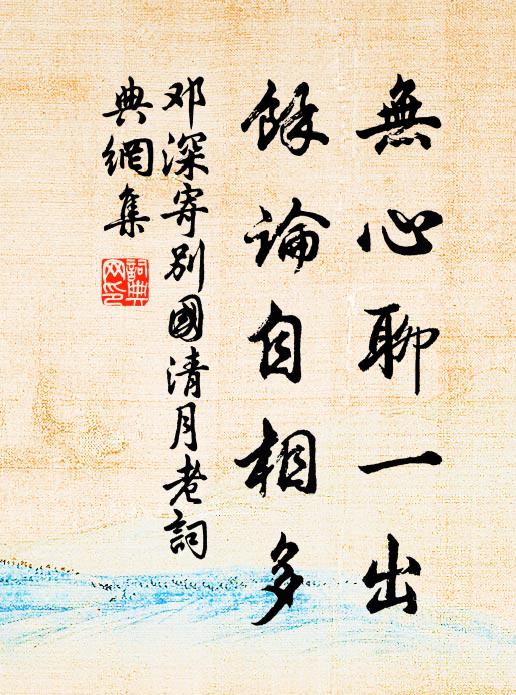 無心聊一出
餘論自相多
邓深寄別國清月老詞
典網集
詞典
网印